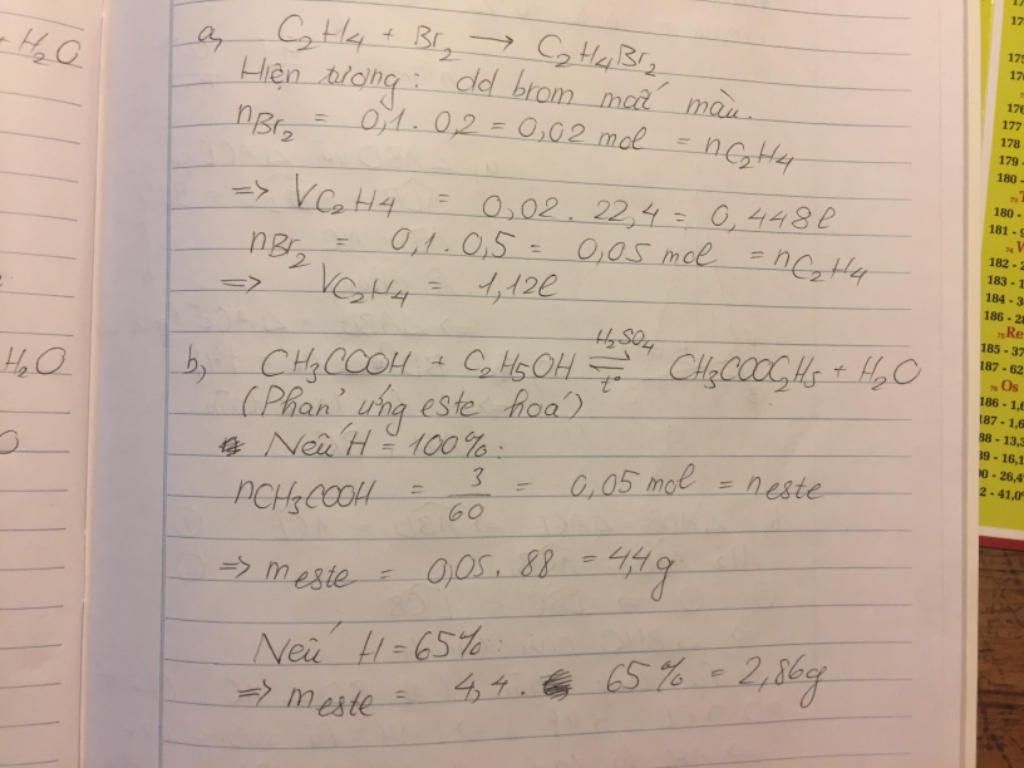 + H₂O
H₂O
O
a, C₂H₄ + Br₂ → C₂H₄Br₂
Hiện tượng: dd brom mất màu.
nBr₂ = 0,1 . 0,2 = 0,02 mol = nC₂H₄
=> VC₂H₄ = 0,02 . 22,4 = 0,448l
nBr₂ = 0,1 . 0,5 = 0,05 mol = nC₂H₄
=> VC₂H₄ = 1,12l
b, CH₃COOH + C₂H₅OH ⇌ CH₃COOC₂H₅ + H₂O
H₂SO₄
t°
(Phản ứng este hoá)
Nếu H = 100%:
nCH₃COOH = 3/60 = 0,05 mol = neste
=> meste = 0,05 . 88 = 4,4g
Nếu H = 65%:
=> meste = 4,4 . 65% = 2,86g
176
177
178
179 -
180 -
180 -
181 - 9
182 - 2
183 - 1
184 - 3
186 - 28
Re
185 - 37
187 - 62
Os
186 - 1,6
187 - 1,6
88 - 13,3
89 - 16,1
90 - 26,4
2 - 41,0%